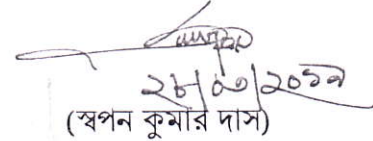 ২৮/০৩/২০১৯
(স্বপন কুমার দাস)